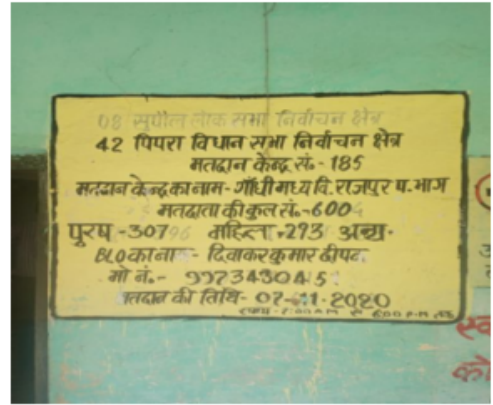 08 सुपौल लोक सभा निर्वाचन क्षेत्र
42 पिपरा विधान सभा निर्वाचन क्षेत्र
मतदान केन्द्र सं.- 185
मतदान केन्द्र का नाम- गाँधी मध्य वि. राजपुर प. भाग
मतदाता की कुल सं.-600
पुरुष -307 महिला-293 अन्य-
BLO का नाम- दिवाकर कुमार दीपक
मो नं.-
मतदान की तिथि- 07-11-2020